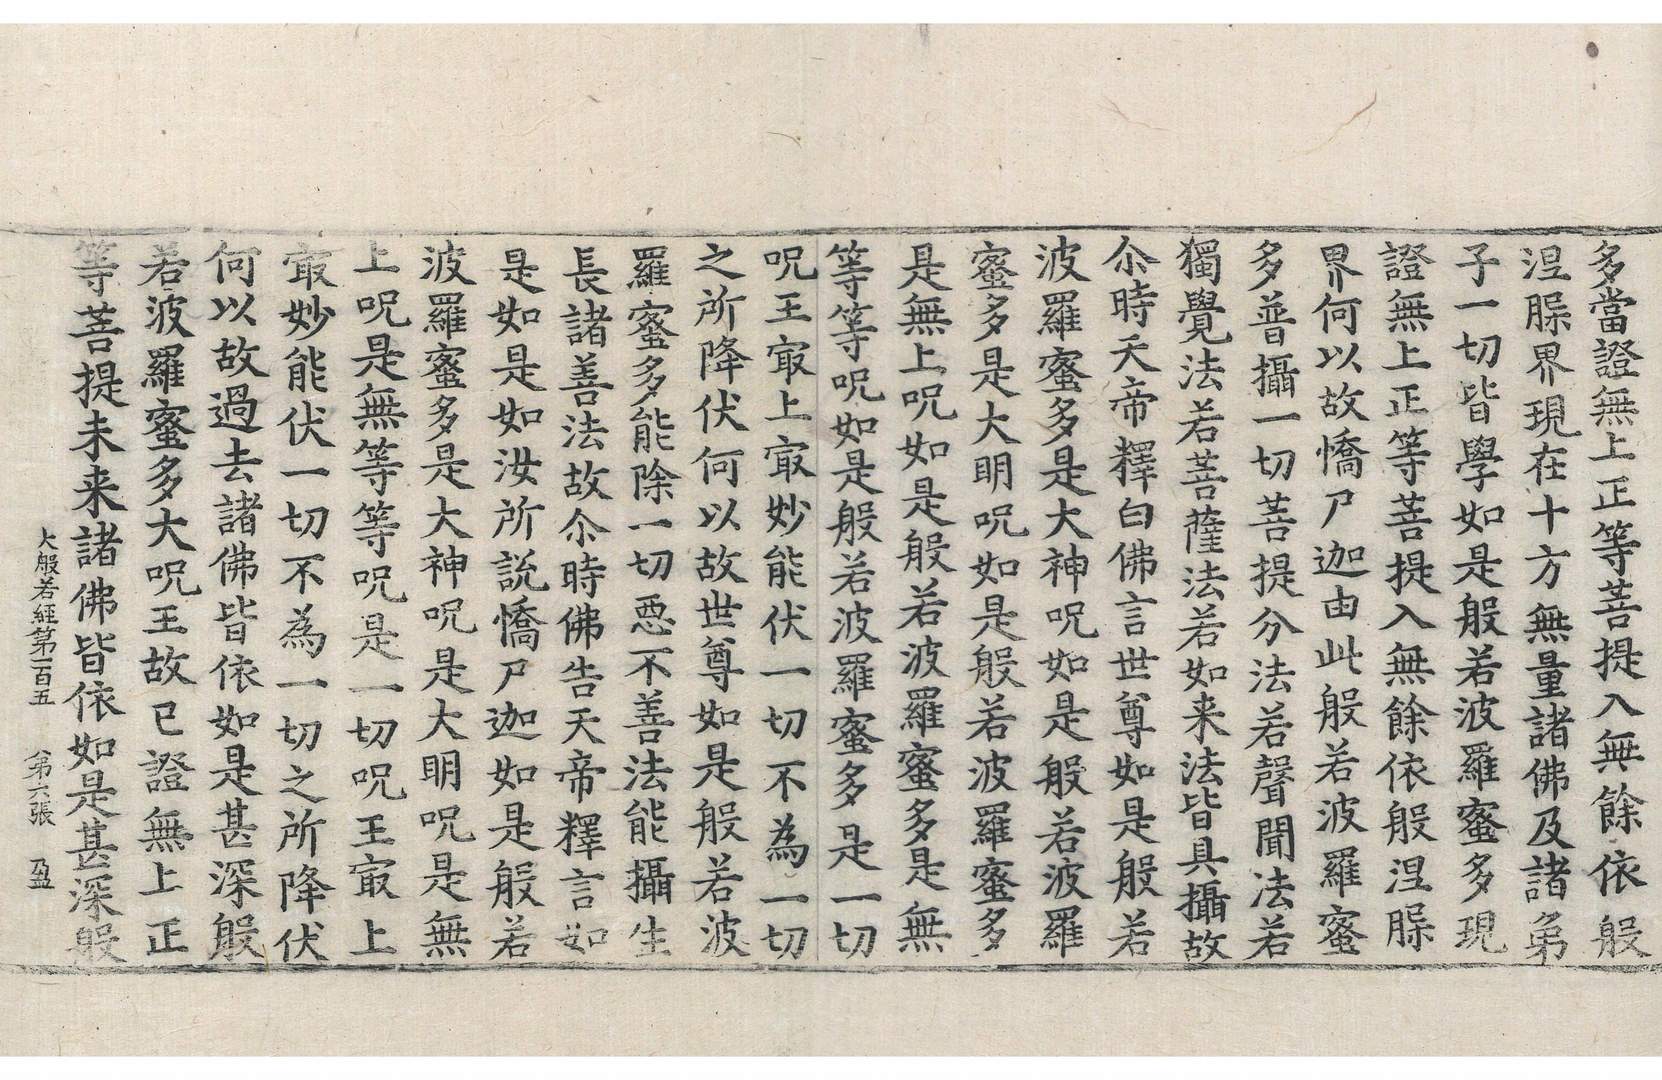 多當證無上正等菩提入無餘依般
涅槃界現在十方無量諸佛及諸弟
子一切皆學如是般若波羅蜜多現
證無上正等菩提入無餘依般涅槃
界何以故憍尸迦由此般若波羅蜜
多普攝一切菩提分法若聲聞法若
獨覺法若菩薩法若如来法皆具攝故
尒時天帝釋白佛言世尊如是般若
波羅蜜多是大神呪如是般若波羅
蜜多是大明呪如是般若波羅蜜多
是無上呪如是般若波羅蜜多是無
等等呪如是般若波羅蜜多是一切
呪王㝡上㝡妙能伏一切不為一切
之所降伏何以故世尊如是般若波
羅蜜多能除一切惡不善法能攝生
長諸善法故尒時佛告天帝釋言如
是如是如汝所説憍尸迦如是般若
波羅蜜多是大神呪是大明呪是無
上呪是無等等呪是一切呪王㝡上
㝡妙能伏一切不為一切之所降伏
何以故過去諸佛皆依如是甚深般
若波羅蜜多大呪王故已證無上正
等菩提未来諸佛皆依如是甚深般
大般若經第一百五 第六張 盈